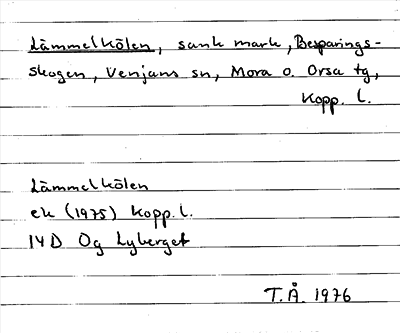 Lämmelkölen, sank mark, Besparings-
skogen, Venjans sn, Mora o. Orsa tg,
Kopp. l.
Lämmelkölen
ek (1975) Kopp. l.
14 D Og Lyberget
T.Å. 1976